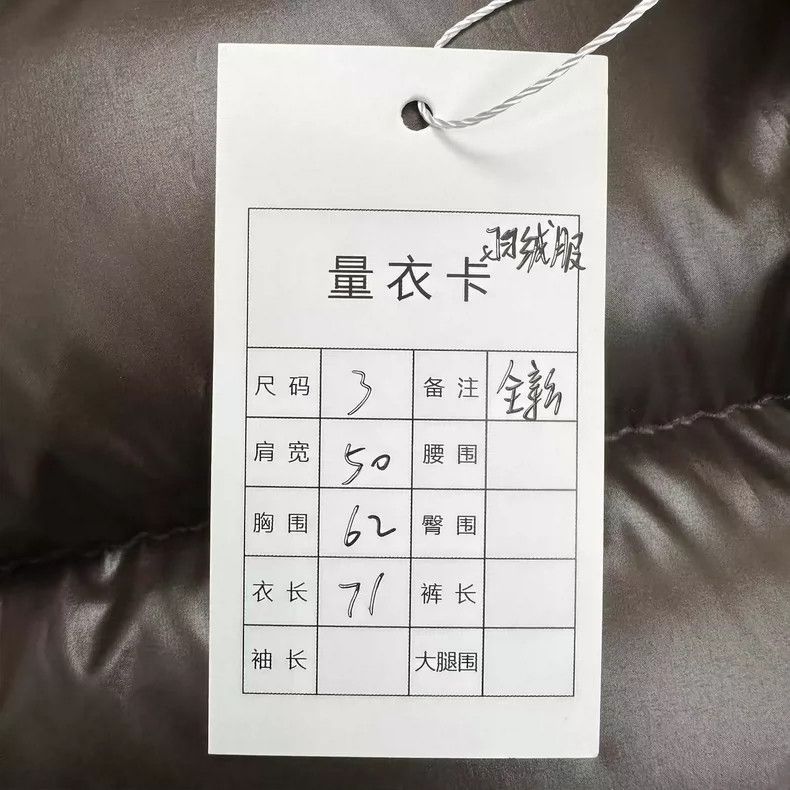 羽绒服
量衣卡
尺码 3 备注 全新
肩宽 50 腰围
胸围 62 臀围
衣长 71 裤长
袖长 大腿围